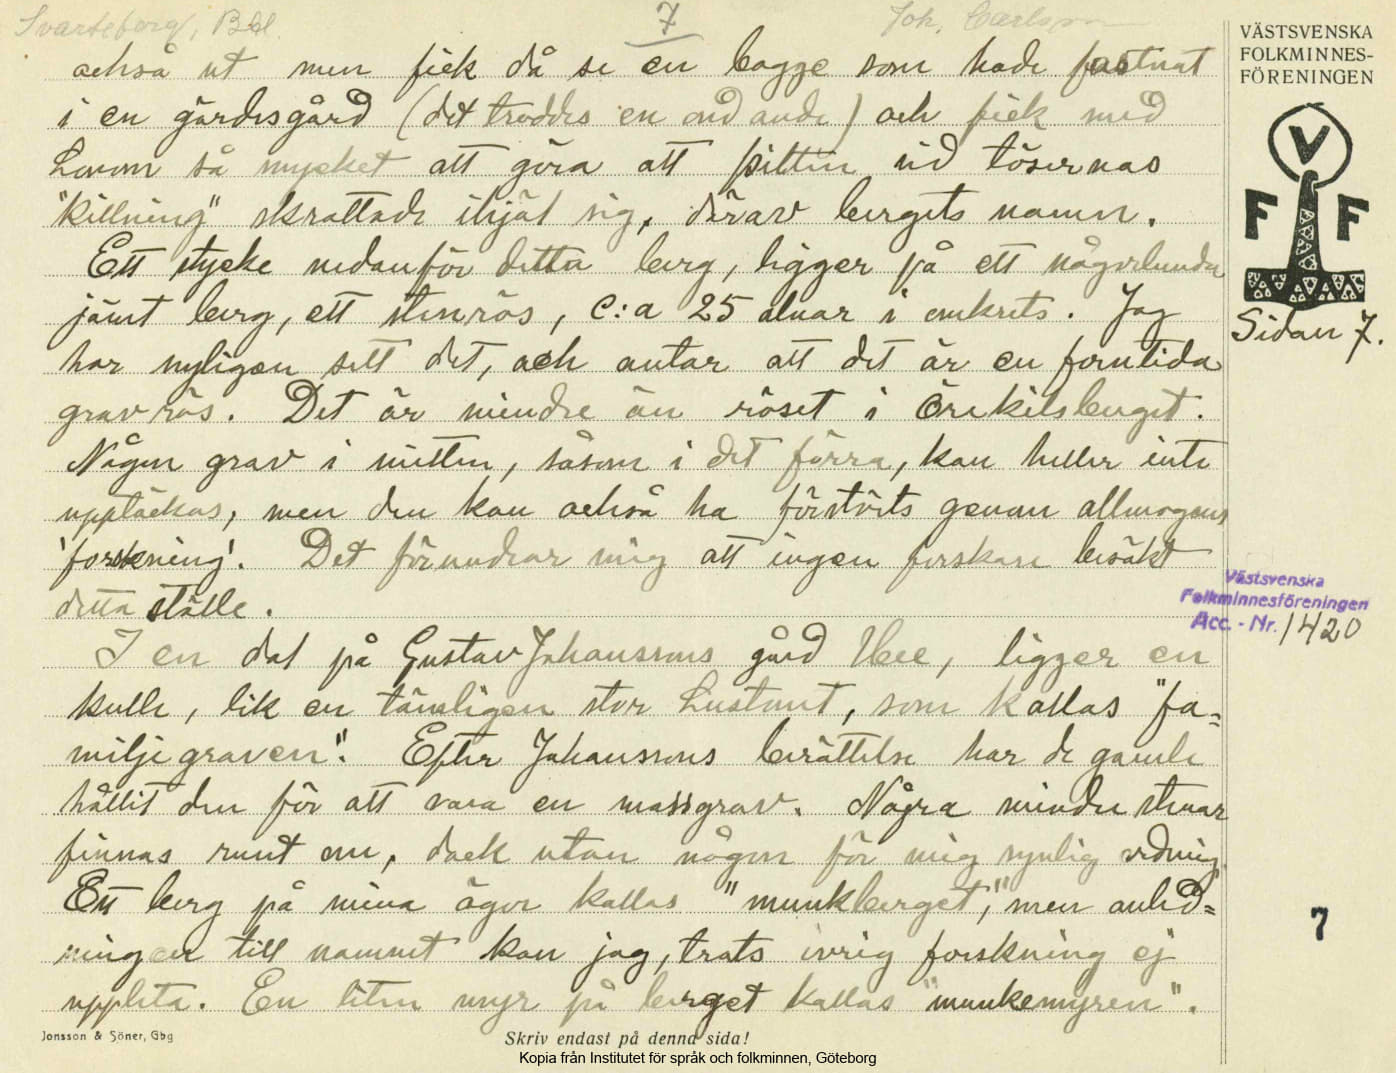 Svarteborg, Bhl.
7
Joh. Carlsson
VÄSTSVENSKA
FOLKMINNES-
FÖRENINGEN
V
F F
Sidan 7.
också ut men fick då se en bagge som hade fastnat
i en gärdesgård (det troddes en ond ande) och fick med
honom så mycket att göra att pilten vid tösernas
"killning" skrattade ihjäl sig, därav bergets namn.
Ett stycke nedanför detta berg, ligger på ett någorlunda
jämt berg, ett stenrös, c:a 25 alnar i omkrets. Jag
har nyligen sett det, och antar att det är en forntida
gravrös. Det är mindre än röset i Örekilsberget.
Någon grav i mitten, såsom i det förra, kan heller inte
upptäckas, men den kan också ha förstörts genom allmogens
'forskning'. Det förundrar mig att ingen forskare besökt
detta ställe.
I en dal på Gustav Johanssons gård , ligger en
kulle, lik en tämligen stor , som kallas "fa=
miljegraven". Efter Johanssons berättelse har de gamle
hållit den för att vara en massgrav. Några mindre stenar
finnas runt om, dock utan någon för mig synlig ordning.
Ett berg på mina ägor kallas "munkberget", men anled=
ningen till namnet kan jag, trots ivrig forskning ej
uppleta. En liten myr på berget kallas "munkemyren".
Västsvenska
Folkminnesföreningen
Acc. - Nr. 1420
7
Jonsson & Söner, Gbg
Skriv endast på denna sida!
Kopia från Institutet för språk och folkminnen, Göteborg